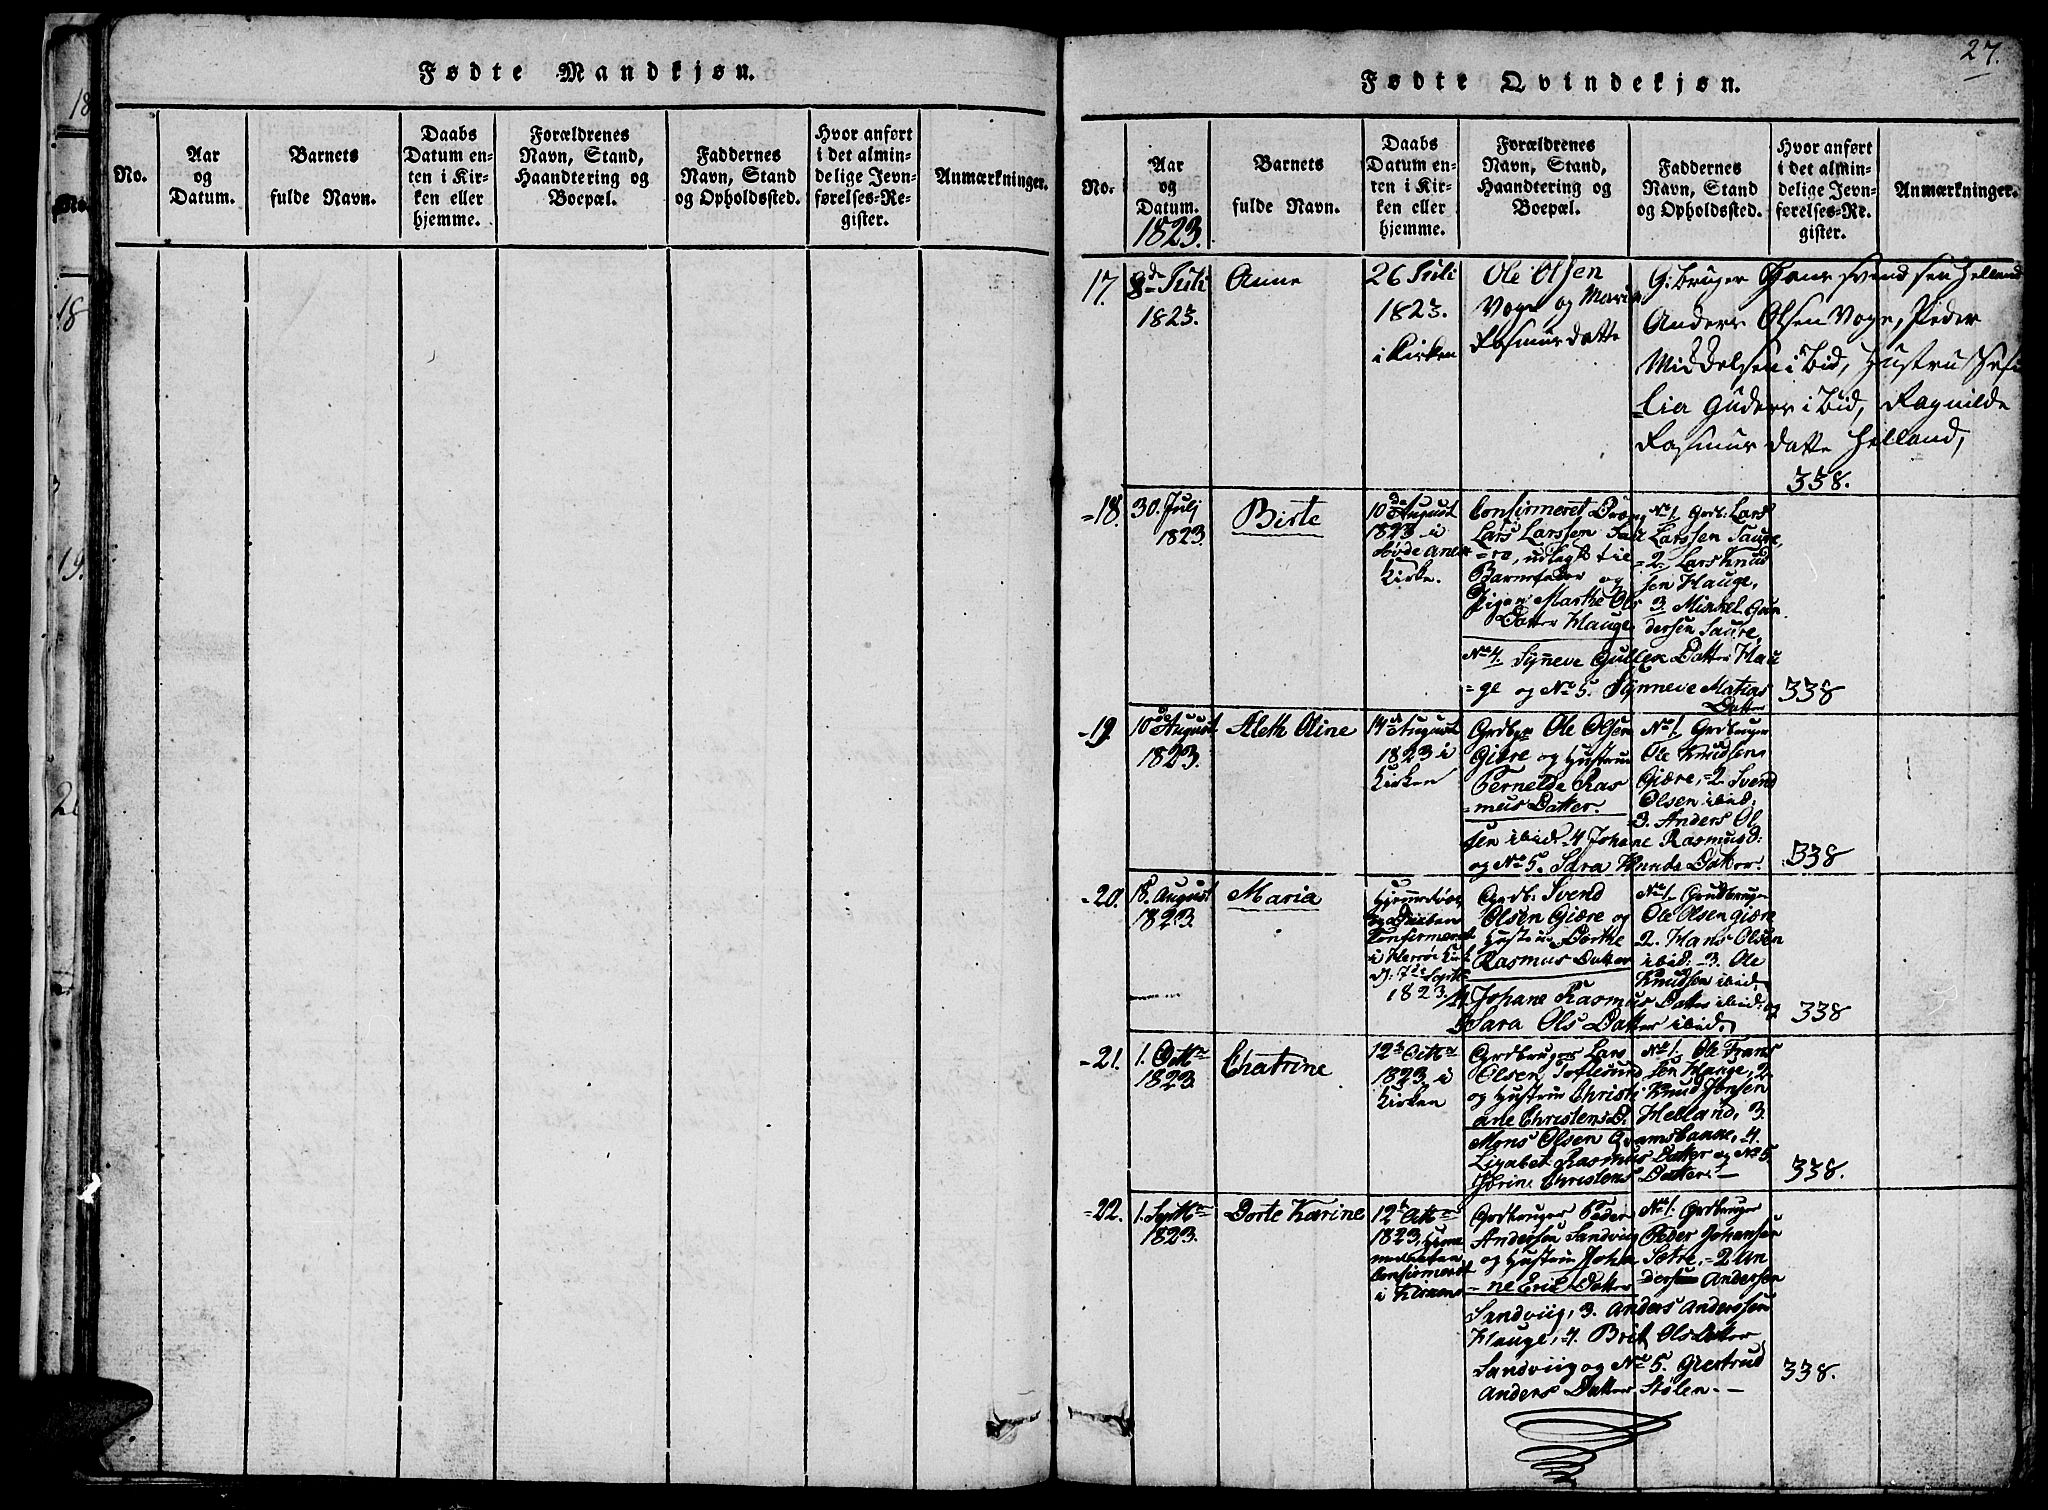 Fødte Mandkjøn.
No.
Aar
og
Datum.
Barnets
fulde Navn.
Daabs
Datum en-
ten i Kir-
ken eller
hjemme.
Forældrenes
Navn, Stand,
Haandtering og
Boepæl.
Faddernes
Navn, Stand
og Opholdssted.
Hvor anført
i det almin-
delige Jevn-
førelses-Re-
gister.
Anmærkninger.
27.
Fødte Qvindekjøn.
No.
Aar
og
Datum.
1823.
Barnets
fulde Navn.
Daabs
Datum en-
ten i Kir-
ken eller
hjemme.
Forældrenes
Navn, Stand,
Haandtering og
Boepæl.
Faddernes
Navn, Stand
og Opholdssted.
Hvor anført
i det almin-
delige Jevn-
førelses-Re-
gister.
Anmærkninger.
17.
8de Juli
1823.
Anne
26 Juli
1823.
i Kirken
Ole Olsen
Vogn og Maria
Rasmusdatte
G:bruger Hans Svendsen Helland
Anders Olsen Vogn, Peder
Middelsen i bid, Hustru
lia Guders i bid, Ragnilde
Rasmus datte Helland,
338.
=18.
30. Julj
1823.
Birte
10de August
1823 i
Kirke.
Confirmeret Dreng
Lars Larssen Sau
=re, udlagt til
Barnefader og
Pigen Marthe Ols
Datter Hauge
No 1. Grdb: Lars
Larssen Saure,
=2. Lars Knud
sen Hauge,
3. Mikkel Gun
dersen Saure,
No 4. Synneve Gullex Datter Hau
=ge og No 5. Synneve Matias
Datter
338
-19.
10de August
1823.
Aleth Oline
14de August
1823 i
Kirken
Grdbgr Ole Olsen
Giære og Hustrue
Pernelde Ras
=mus Datter.
No 1. Grdbruger
Ole Knudsen
Giære, =2. Svend
Olsen ibid:
=3. Anders Ol
sen ibid 4 Johane Rasmusd:
og No 5. Sara Knuds Datter.
338
=20.
18. August
1823.
Maria
Hjemmedøbt
Confirmeret
i Herrøe Kirke
d: 7de Septbr
1823.
Grdb: Svend
Olsen Giære og
Hustrue Dorthe
Rasmus Datter
No 1. Grudbruger
Ole Olsen Giære
2. Hans Olsen
ibid: =3. Ole
Knudsen ibid,
4. Johane Rasmus Datter ibid: og
5. Sara Ols Datter ibid.
338
=21.
1. Octbr
1823.
Chatrine
12te Octbr
1823 i
Kirken
Grdbruger Lars
Olsen Toflesund
og Hustrue Christi
ane Christens D.
No 1. Ole Frans
sen Hauge, 2.
Knud Jonsen
Helland, 3.
Mons Olsen Gramsbakke, 4.
Lizabet Rasmus Datter og No 5.
Jorine Christens Datter. —
338.
=22.
1. Septbr
1823.
Dorte Karine
12te Octbr
1823, Hjem
Confirmeret
i Kirken
Grdbruger Peder
Andersen Sandviig
og Hustrue Joha
=ne Erics Datter
No 1. Grdbruger
Peder Johansen
Sætre, =2. An
ders Andersen
Sandviig, 3. Anders Anderssen
Hauge, =4. Brit Ols Datter
Sandviig og No 5. Giertrud
Anders Datter Stølen. —
338.